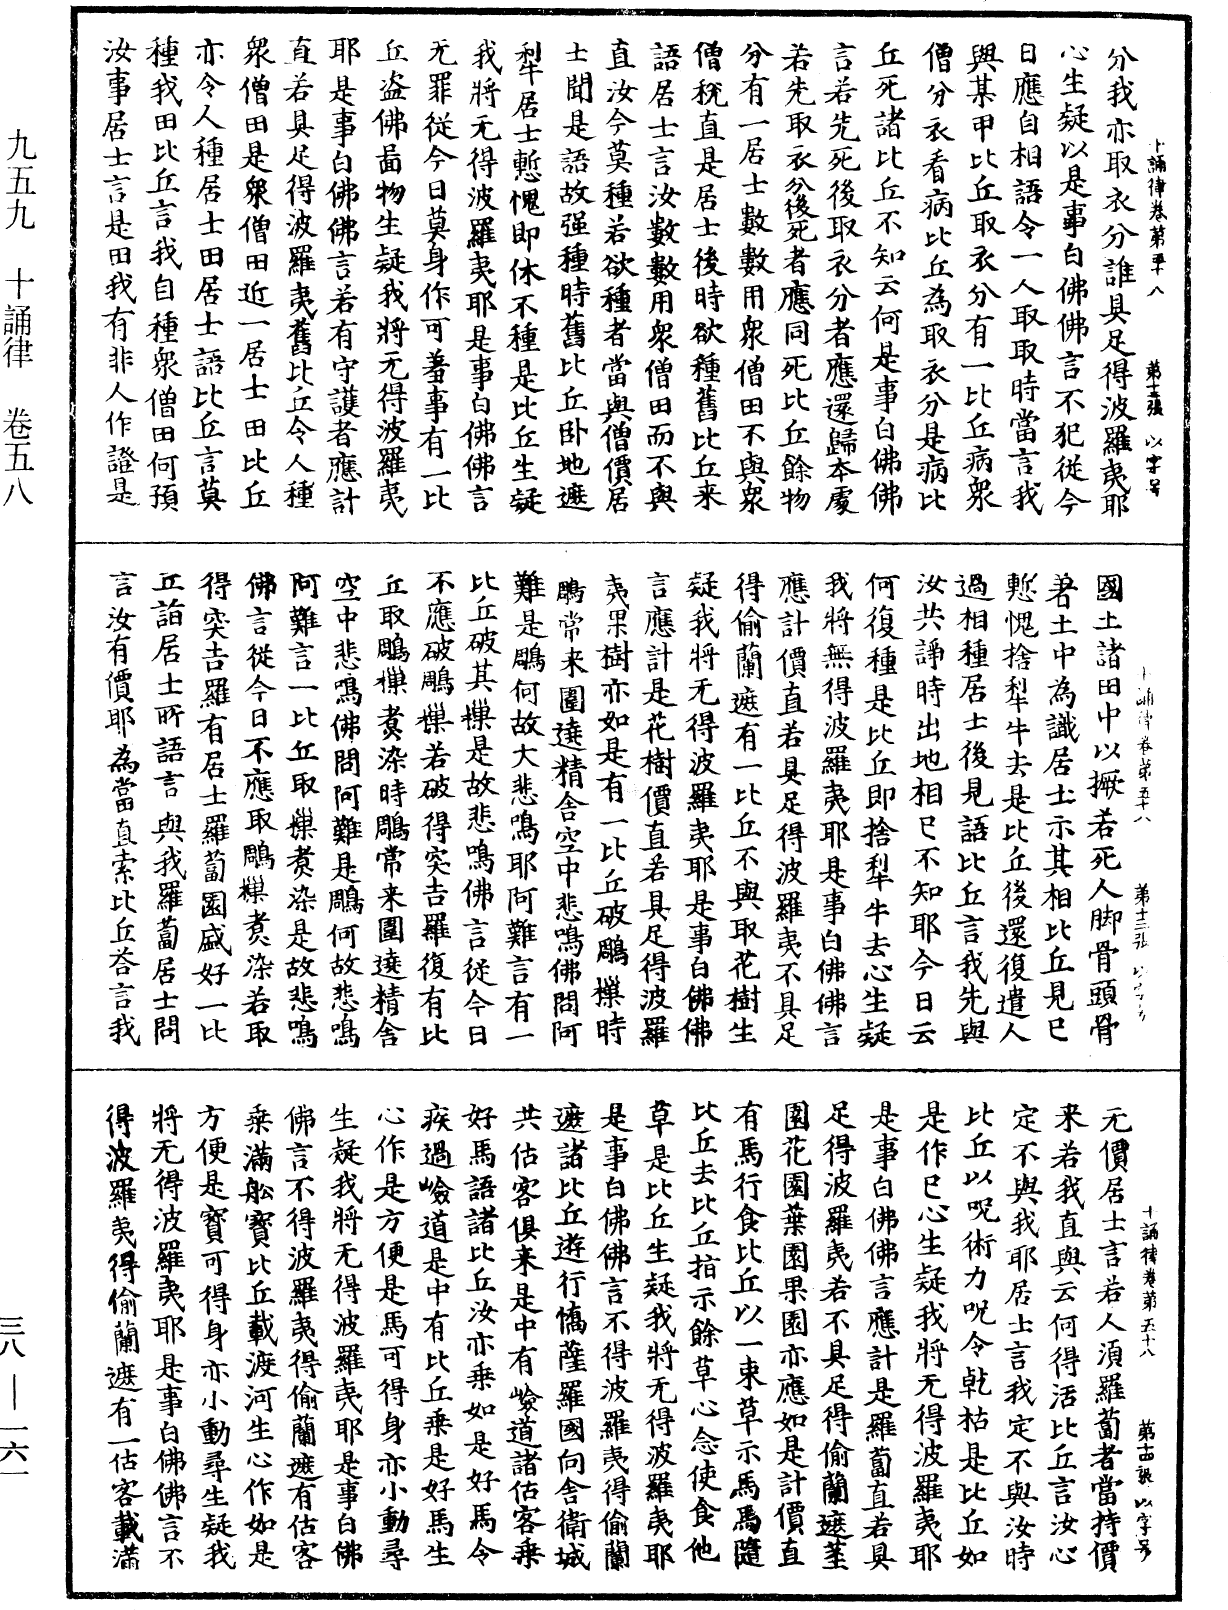 十誦律卷第五十八　第十二張　以字号
分我亦取衣分誰具足得波羅夷耶
心生疑以是事白佛佛言不犯從今
日應自相語令一人取取時當言我
與某甲比丘取衣分有一比丘病衆
僧分衣看病比丘為取衣分是病比
丘死諸比丘不知云何是事白佛佛
言若先死後取衣分者應還歸本處
若先取衣分後死者應同死比丘餘物
分有一居士數數用衆僧田不與衆
僧稅直是居士後時欲種舊比丘来
語居士言汝數數用衆僧田而不與
直汝今莫種若欲種者當與僧價居
士聞是語故强種時舊比丘卧地遮
犁居士慙愧即休不種是比丘生疑
我將无得波羅夷耶是事白佛佛言
无罪從今日莫身作可羞事有一比
丘盗佛啚物生疑我將无得波羅夷
耶是事白佛佛言若有守護者應計
直若具足得波羅夷舊比丘令人種
衆僧田是衆僧田近一居士田比丘
亦令人種居士田居士語比丘言莫
種我田比丘言我自種衆僧田何預
汝事居士言是田我有非人作證是
十誦律卷第五十八　第十三張
國土諸田中以撅若死人脚骨頭骨
著土中為識居士示其相比丘見已
慙愧捨犁牛去是比丘後還復遣人
過相種居士後見語比丘言我先與
汝共諍時出地相已不知耶今日云
何復種是比丘即捨犁牛去心生疑
我將無得波羅夷耶是事白佛佛言
應計價直若具足得波羅夷不具足
得偷蘭遮有一比丘不與取花樹生
疑我將无得波羅夷耶是事白佛佛
言應計是花樹價直若具足得波羅
夷果樹亦如是有一比丘破鵰樔時
鵰常来圍遶精舍空中悲鳴佛問阿
難是鵰何故大悲鳴耶阿難言有一
比丘破其樔是故悲鳴佛言從今日
不應破鵰樔若破得突吉羅復有比
丘取鵰樔煑染時鵰常来圍遶精舍
空中悲鳴佛問阿難是鵰何故悲鳴
阿難言一比丘取樔煑染是故悲鳴
佛言從今日不應取鵰樔煑染若取
得突吉羅有居士羅蔔園盛好一比
丘詣居士所語言與我羅蔔居士問
言汝有價耶為當直索比丘荅言我
十誦律卷第五十八　第十四張　以字号
无價居士言若人湏羅蔔者當持價
来若我直與云何得活比丘言汝心
定不與我耶居士言我定不與汝時
比丘以呪術力呪令乹枯是比丘如
是作已心生疑我將无得波羅夷耶
是事白佛佛言應計是羅蔔直若具
足得波羅夷若不具足得偷蘭遮茎
園花園葉園果園亦應如是計價直
有馬行食比丘以一束草示馬馬隨
比丘去比丘指示餘草心念使食他
草是比丘生疑我將无得波羅夷耶
是事白佛佛言不得波羅夷得偷蘭
遮諸比丘遊行憍薩羅國向舍衛城
共估客俱来是中有嶮道諸估客乗
好馬語諸比丘汝亦乗如是好馬令
疾過嶮道是中有比丘乗是好馬生
心作是方便是馬可得身亦小動尋
生疑我將无得波羅夷耶是事白佛
佛言不得波羅夷得偷蘭遮有估客
乗滿舩寳比丘載渡河生心作如是
方便是寳可得身亦小動尋生疑我
將无得波羅夷耶是事白佛佛言不
得波羅夷得偷蘭遮有一估客載滿
九五九　十誦律　卷五八
三八——一六一